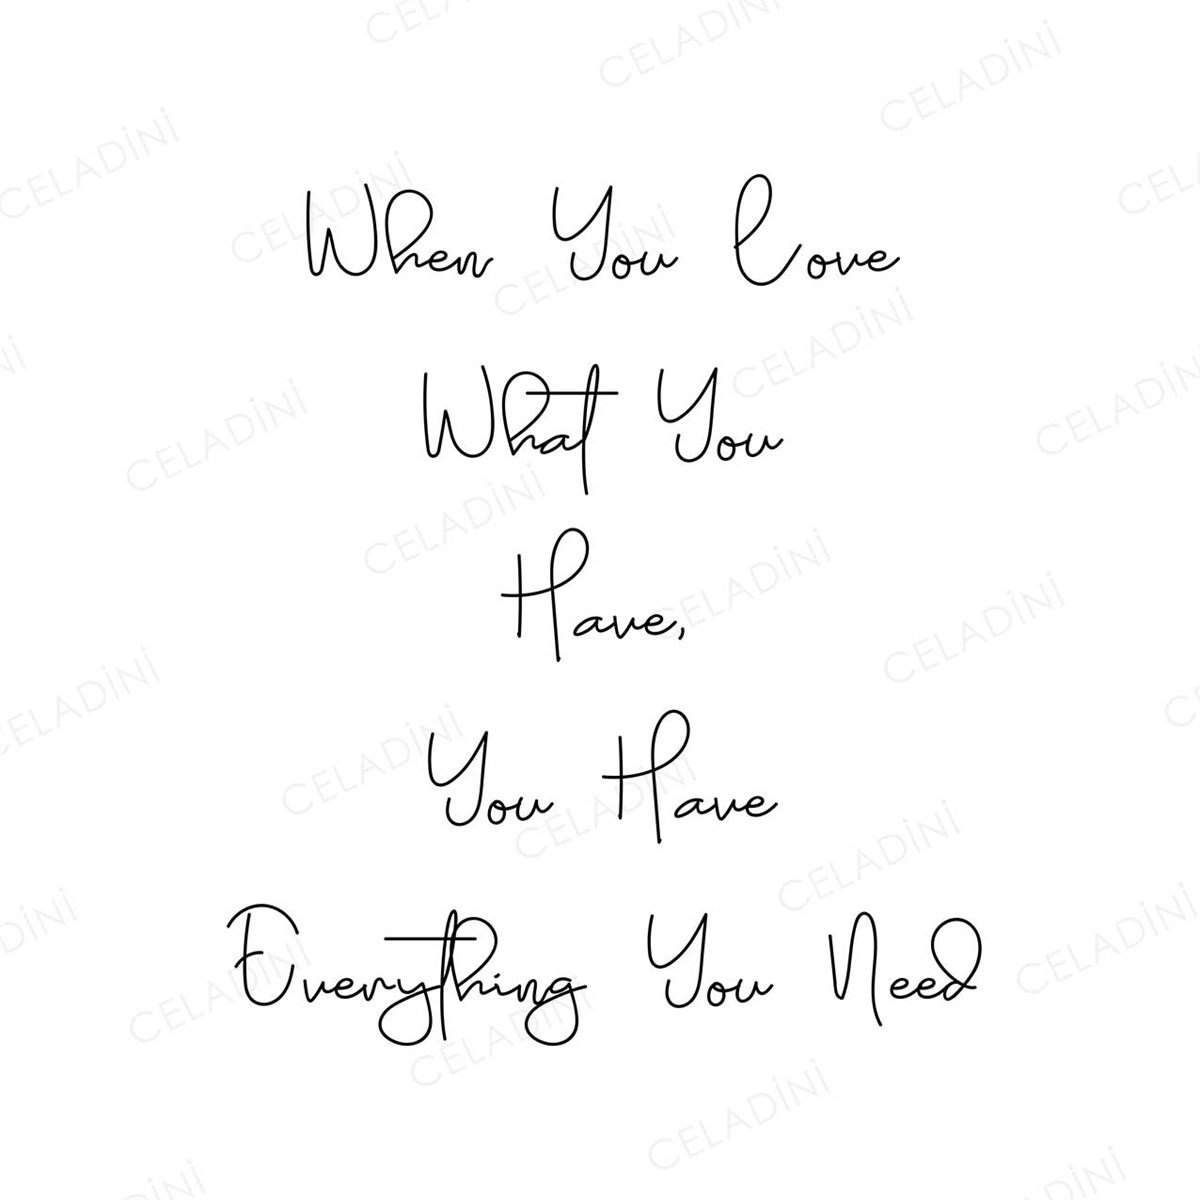 When You Love
What You
Have,
You Have
Everything You Need
CELADİNİ